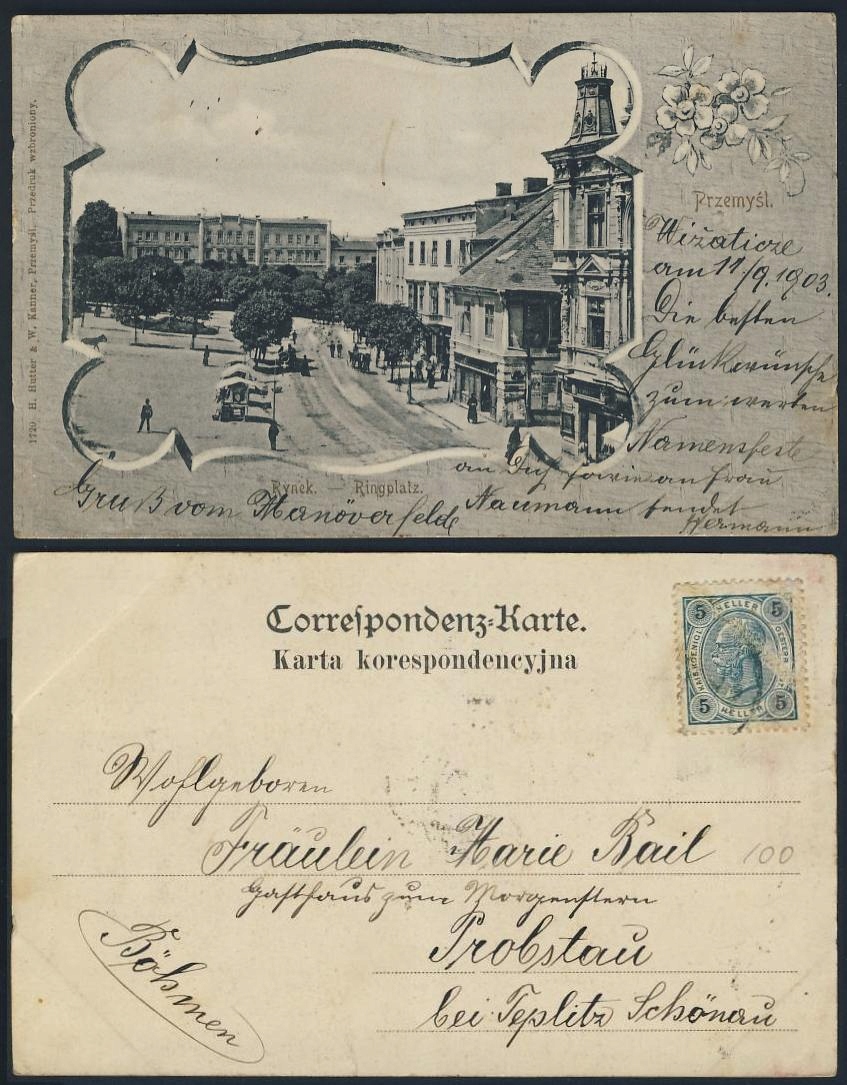 1720. H. Hutter & W. Kanner, Przemyśl. Przedruk wzbroniony.
Przemyśl.
Wiżaticze
am 11/9. 1903.
Die besten
Glückwünsche
zum werten
Namensfeste
an Dich sowie an Frau
Naumann sendet
Hermann
Rynek. — Ringplatz.
Gruß vom Manöverfelde
Correspondenz-Karte.
Karta korespondencyjna
5 HELLER 5
KAIS. KOENIGL. OESTERR.
5 HELLER 5
Wohlgeboren
Fräulein Marie Bail 100
Gasthaus zum Morgenstern
Probstau
bei Teplitz Schönau
Böhmen